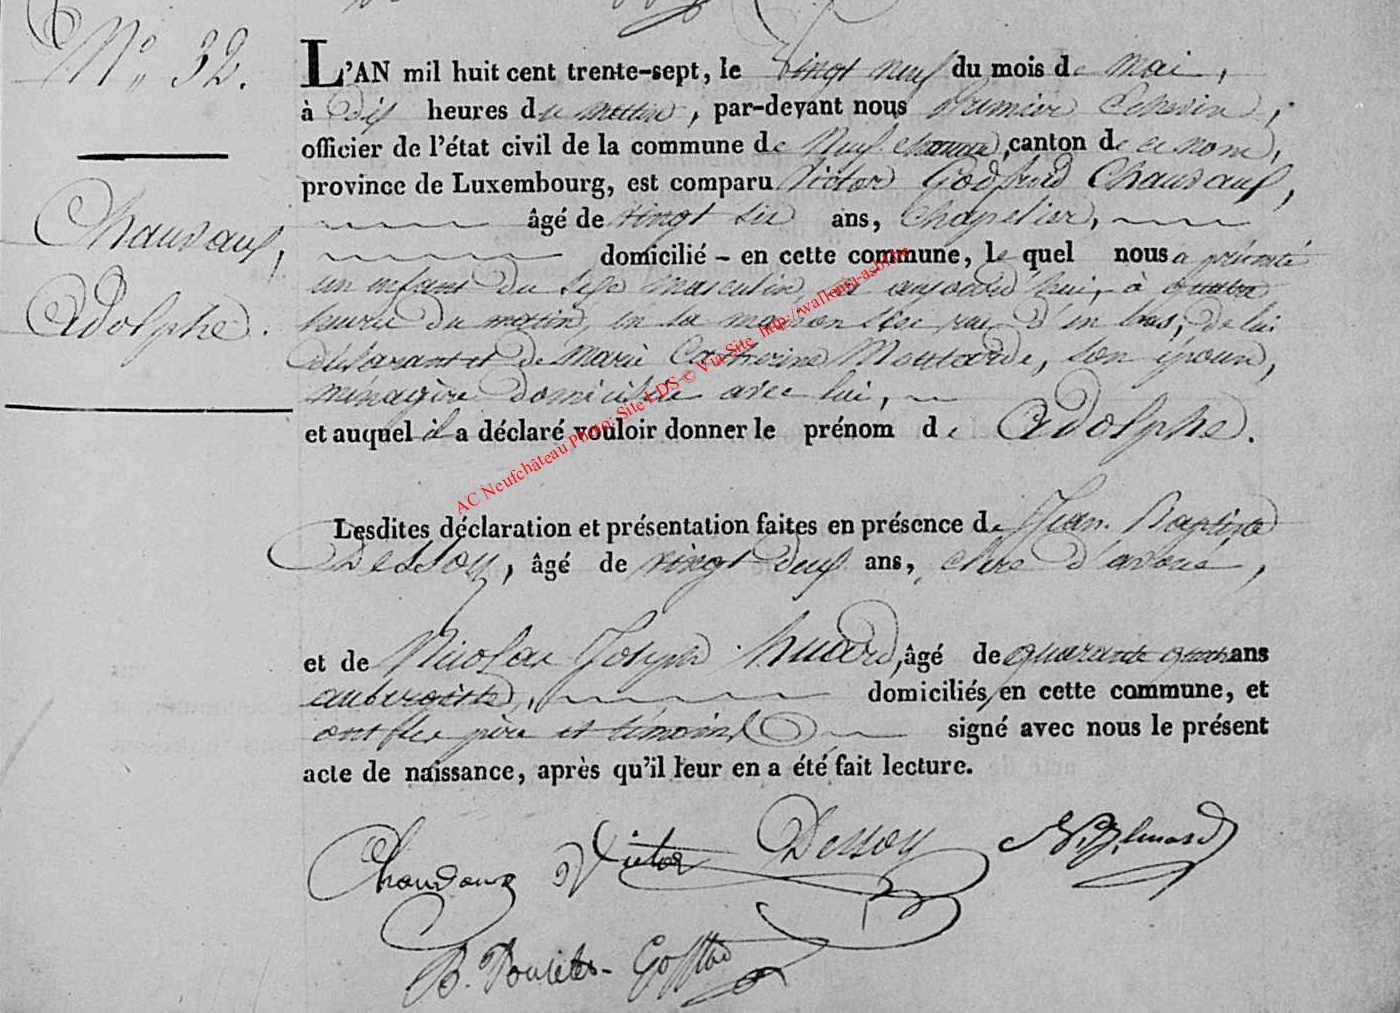 N° 32.
Chaudauf,
Adolphe.
L'AN mil huit cent trente-sept, le vingt neuf du mois de mai,
à dix heures du matin, par-devant nous Premier Echevin,
officier de l'état civil de la commune de Neufchateau, canton de ce nom,
province de Luxembourg, est comparu Victor Godfrid Chaudauf,
âgé de vingt six ans, Chapelier,
domicilié – en cette commune, le quel nous a présenté
un enfant du sexe masculin né aujourd'hui, à quatre
heures du matin, en sa maison rue d'en bas, de lui
déclarant et de Marie Catherine Moutarde, son épouse,
ménagère domiciliée avec lui,
et auquel il a déclaré vouloir donner le prénom de Adolphe.
Lesdites déclaration et présentation faites en présence de Jean Baptiste
Dessoy, âgé de vingt deux ans, clerc d'avoué,
et de Nicolas Joseph huard, âgé de quarante quatre ans
aubergiste, domiciliés en cette commune, et
ont les père et témoins signé avec nous le présent
acte de naissance, après qu'il leur en a été fait lecture.
Chaudauf Victor Dessoy N.J. huard
B. Poulet-Goffin
AC Neufchâteau Photo: Site LDS © Via Site http://wallonia-asbl.be